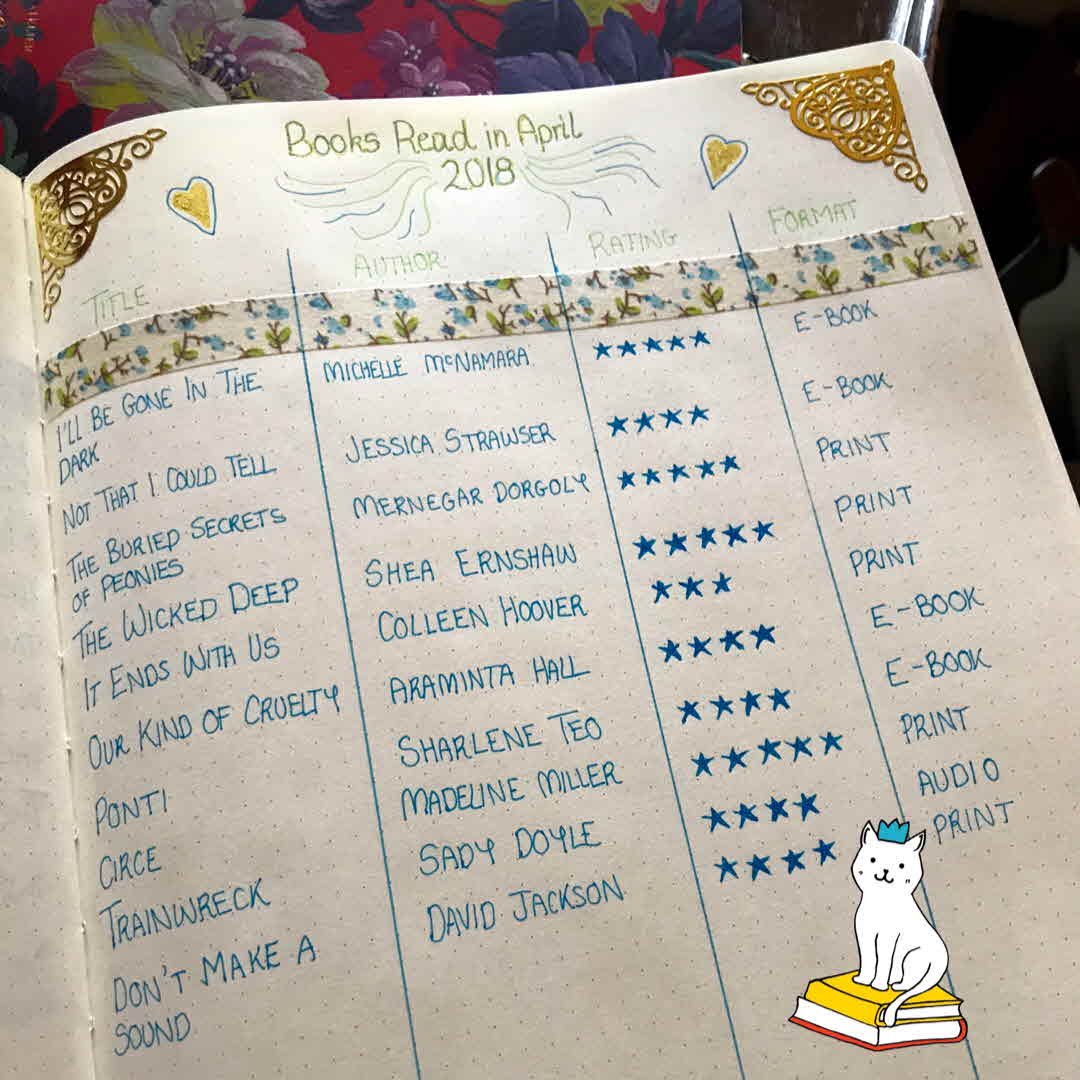 Books Read in April
2018
TITLE AUTHOR RATING FORMAT
I'LL BE GONE IN THE MICHELLE McNAMARA ★★★★★ E-BOOK
DARK
NOT THAT I COULD TELL JESSICA STRAWSER ★★★★ E-BOOK
THE BURIED SECRETS MERNEGAR DORGOLY ★★★★★ PRINT
OF PEONIES
THE WICKED DEEP SHEA ERNSHAW ★★★★★ PRINT
IT ENDS WITH US COLLEEN HOOVER ★★★ PRINT
OUR KIND OF CRUELTY ARAMINTA HALL ★★★★ E-BOOK
PONTI SHARLENE TEO ★★★★ E-BOOK
CIRCE MADELINE MILLER ★★★★★ PRINT
TRAINWRECK SADY DOYLE ★★★★ AUDIO
DON'T MAKE A DAVID JACKSON ★★★★ PRINT
SOUND